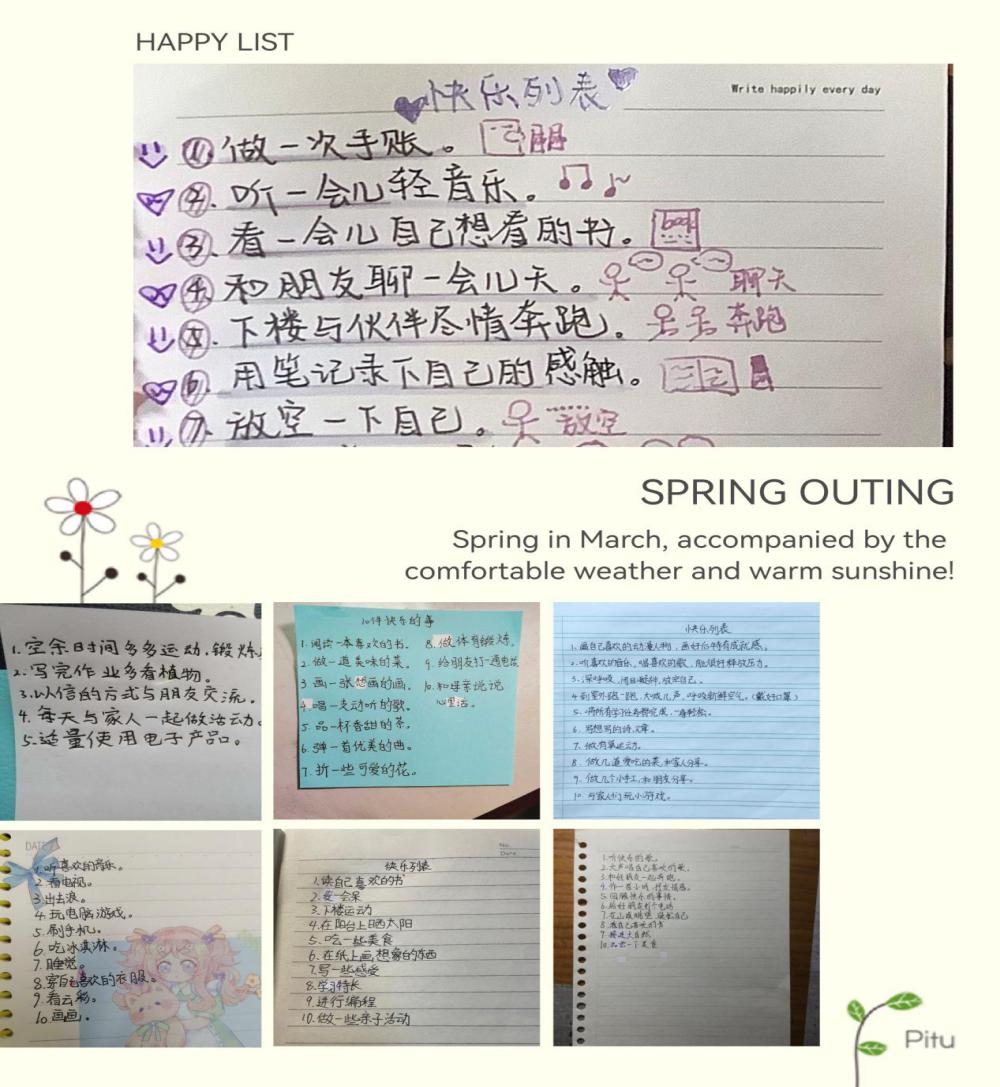 HAPPY LIST
快乐列表
Write happily every day
①做一次手账。
②.听一会儿轻音乐。
③.看一会儿自己想看的书。 book
④和朋友聊一会儿天。 聊天
⑤.下楼与伙伴尽情奔跑。 奔跑
⑥.用笔记录下自己的感触。
⑦.放空一下自己。 放空
SPRING OUTING
Spring in March, accompanied by the
comfortable weather and warm sunshine!
1.空余时间多多运动,锻炼
2.写完作业多看植物。
3.以信的方式与朋友交流。
4.每天与家人一起做活动。
5.适量使用电子产品。
10件快乐的事
1.阅读一本喜欢的书。
2.做一道美味的菜。
3.画一张想画的画。
4.唱一支动听的歌。
5.品一杯香甜的茶。
6.弹一首优美的曲。
7.折一些可爱的花。
8.做体育锻炼。
9.给朋友打一通电话
10.和母亲说说
心里话。
快乐列表
1.画自己喜欢的动漫人物,画好后特有成就感。
2.听喜欢的音乐、唱喜欢的歌,能很好释放压力。
3.深呼吸,闭目凝神,放空自己。
4.到室外跑一跑,大喊几声,呼吸新鲜空气。(戴好口罩)
5.将所有学习任务都完成,一身轻松。
6.写想写的诗、文章。
7.做有氧运动。
8.做几道爱吃的菜,和家人分享。
9.做几个小手工,和朋友分享。
10.与家人们玩小游戏。
DATE
1.听喜欢的音乐。
2.看电视。
3.出去浪。
4.玩电脑游戏。
5.刷手机。
6.吃冰淇淋。
7.睡觉。
8.穿自己喜欢的衣服。
9.看云彩。
10.画画。
No.
Date.
快乐列表
1.读自己喜欢的书
2.发一会呆
3.下楼运动
4.在阳台上晒太阳
5.吃一些美食
6.在纸上画想象的东西
7.写一些感受
8.学习特长
9.进行编程
10.做一些亲子活动
1.听快乐的歌。
2.大声唱自己喜欢的歌。
3.和好朋友一起奔跑。
5.回顾快乐的事情。
6.给好朋友打个电话
8.看自己喜欢的书
9.接近大自然
10.品尝一下美食
Pitu